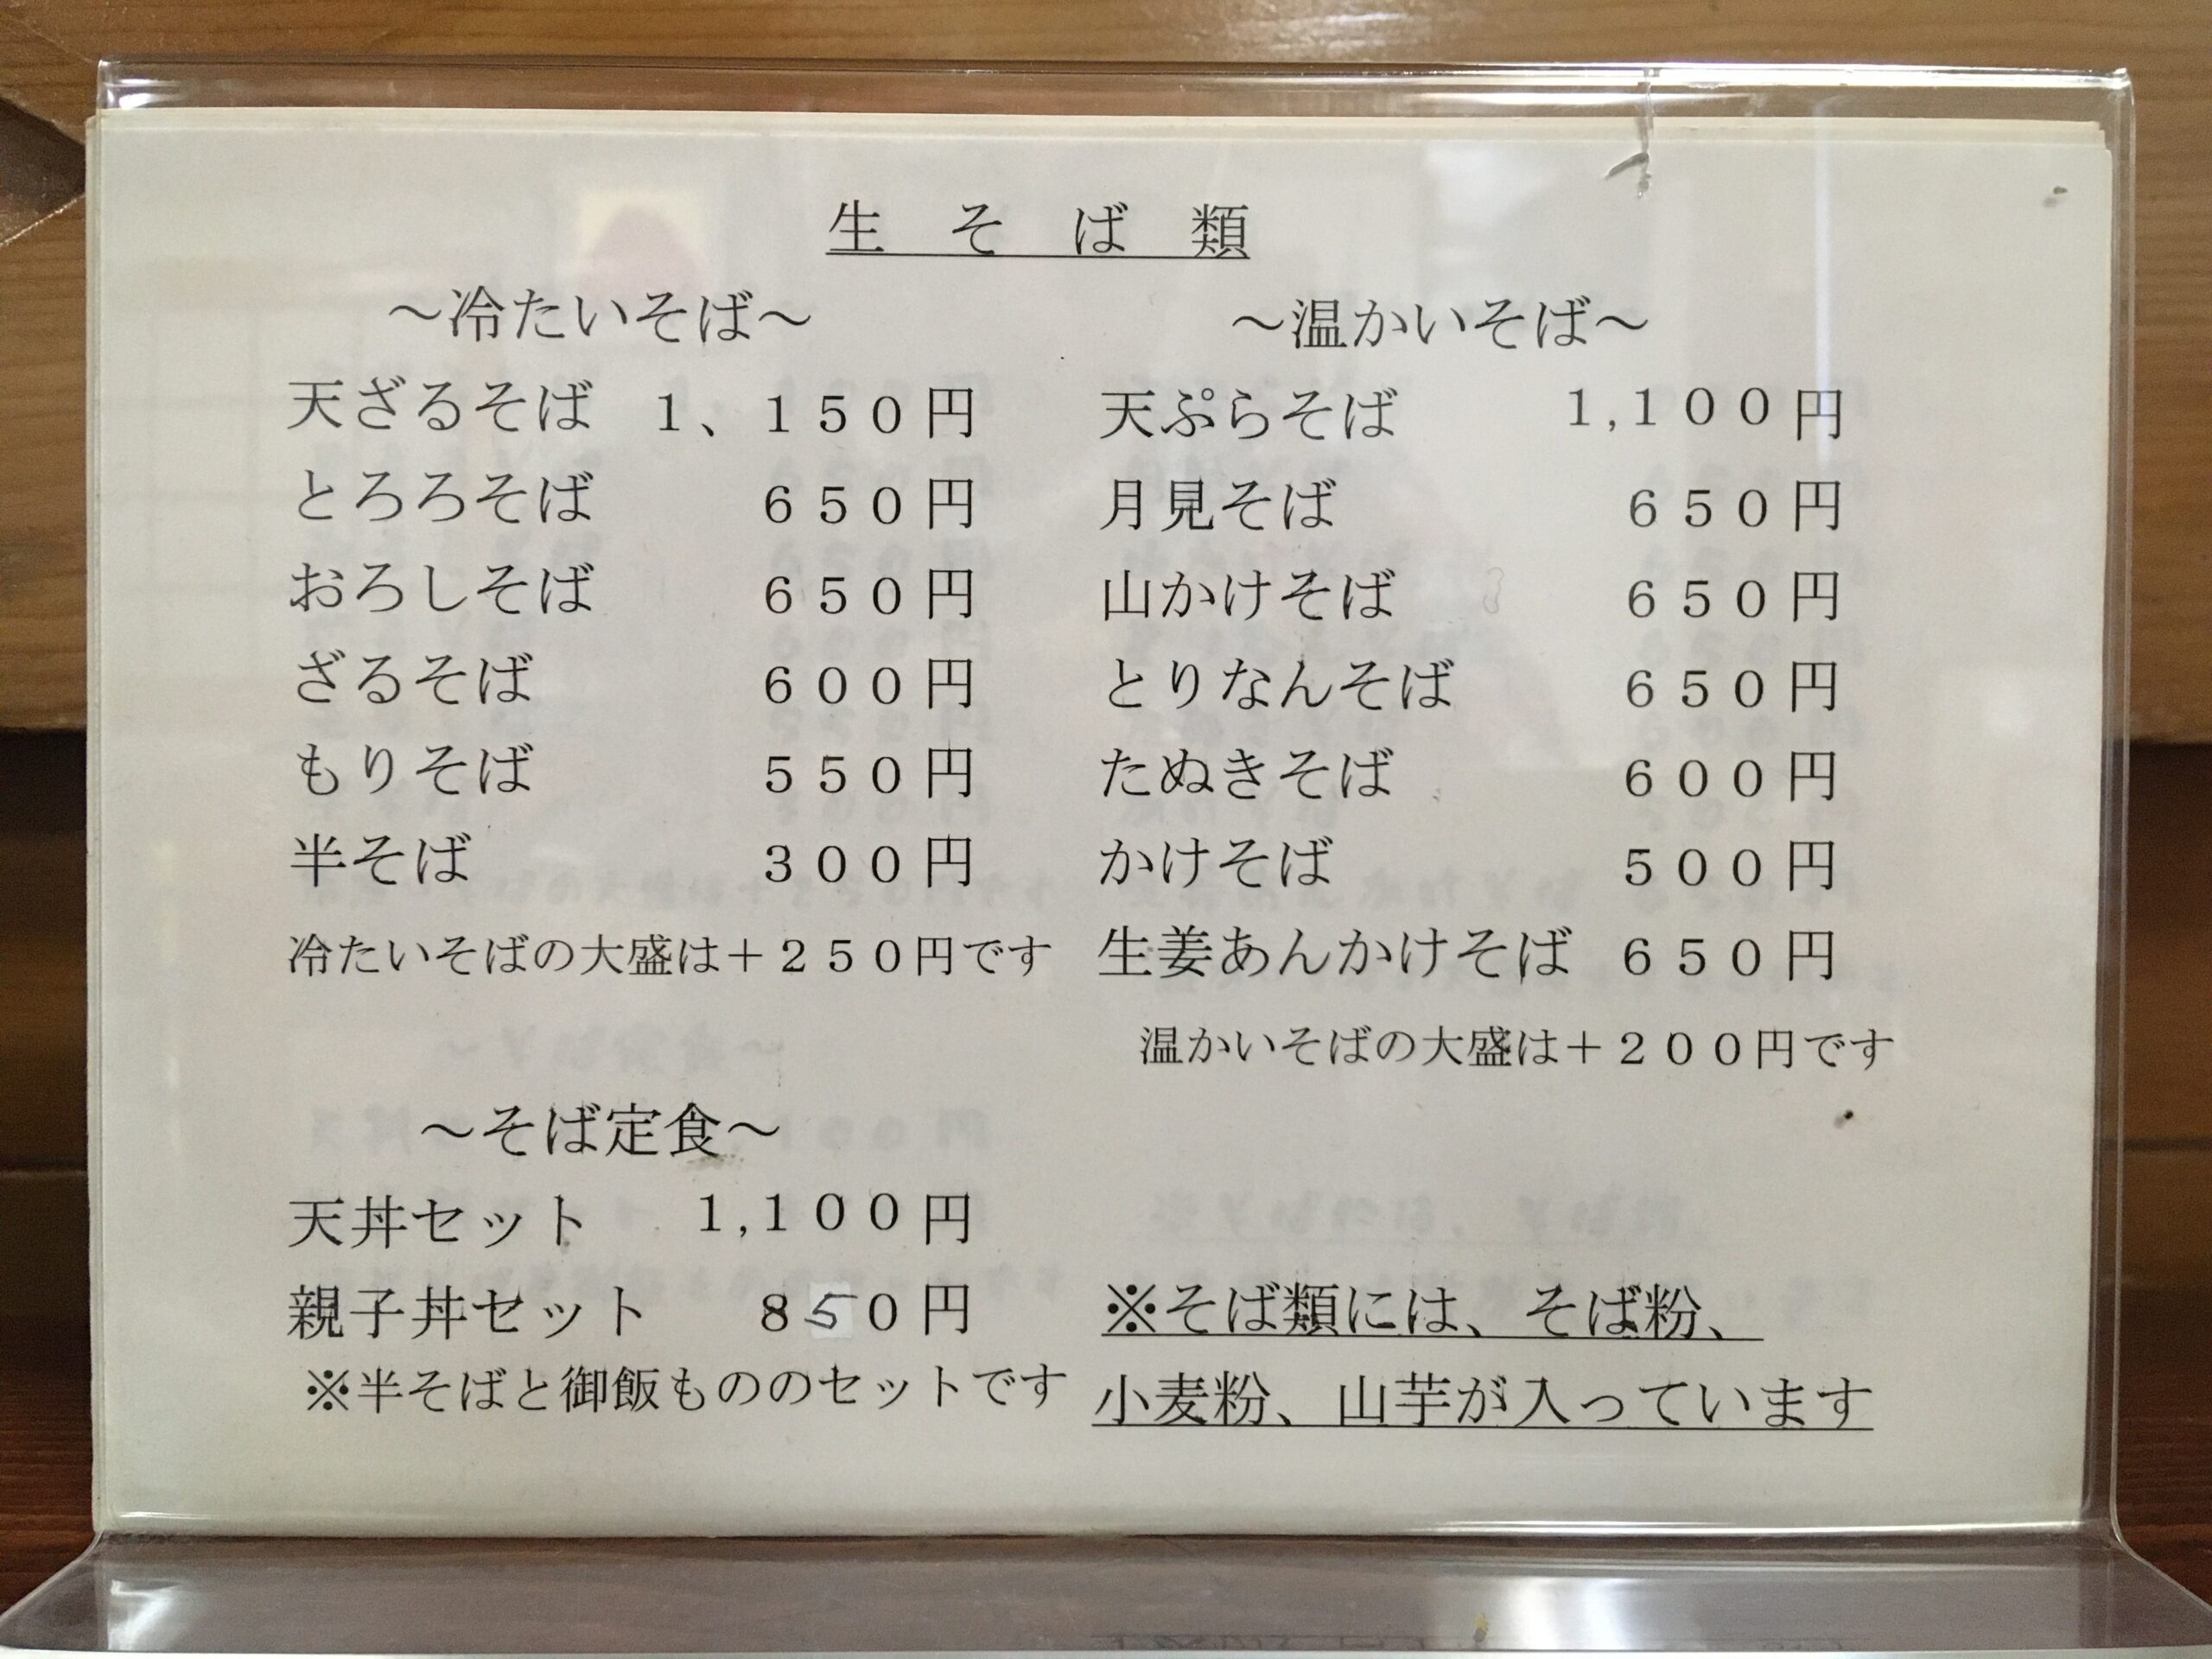 生そば類
～冷たいそば～
天ざるそば １、１５０円
とろろそば ６５０円
おろしそば ６５０円
ざるそば ６００円
もりそば ５５０円
半そば ３００円
冷たいそばの大盛は＋２５０円です
～温かいそば～
天ぷらそば 1,1００円
月見そば ６５０円
山かけそば ６５０円
とりなんそば ６５０円
たぬきそば ６００円
かけそば ５００円
生姜あんかけそば ６５０円
温かいそばの大盛は＋２００円です
～そば定食～
天丼セット 1,1００円
親子丼セット ８５０円
※半そばと御飯もののセットです
※そば類には、そば粉、
小麦粉、山芋が入っています